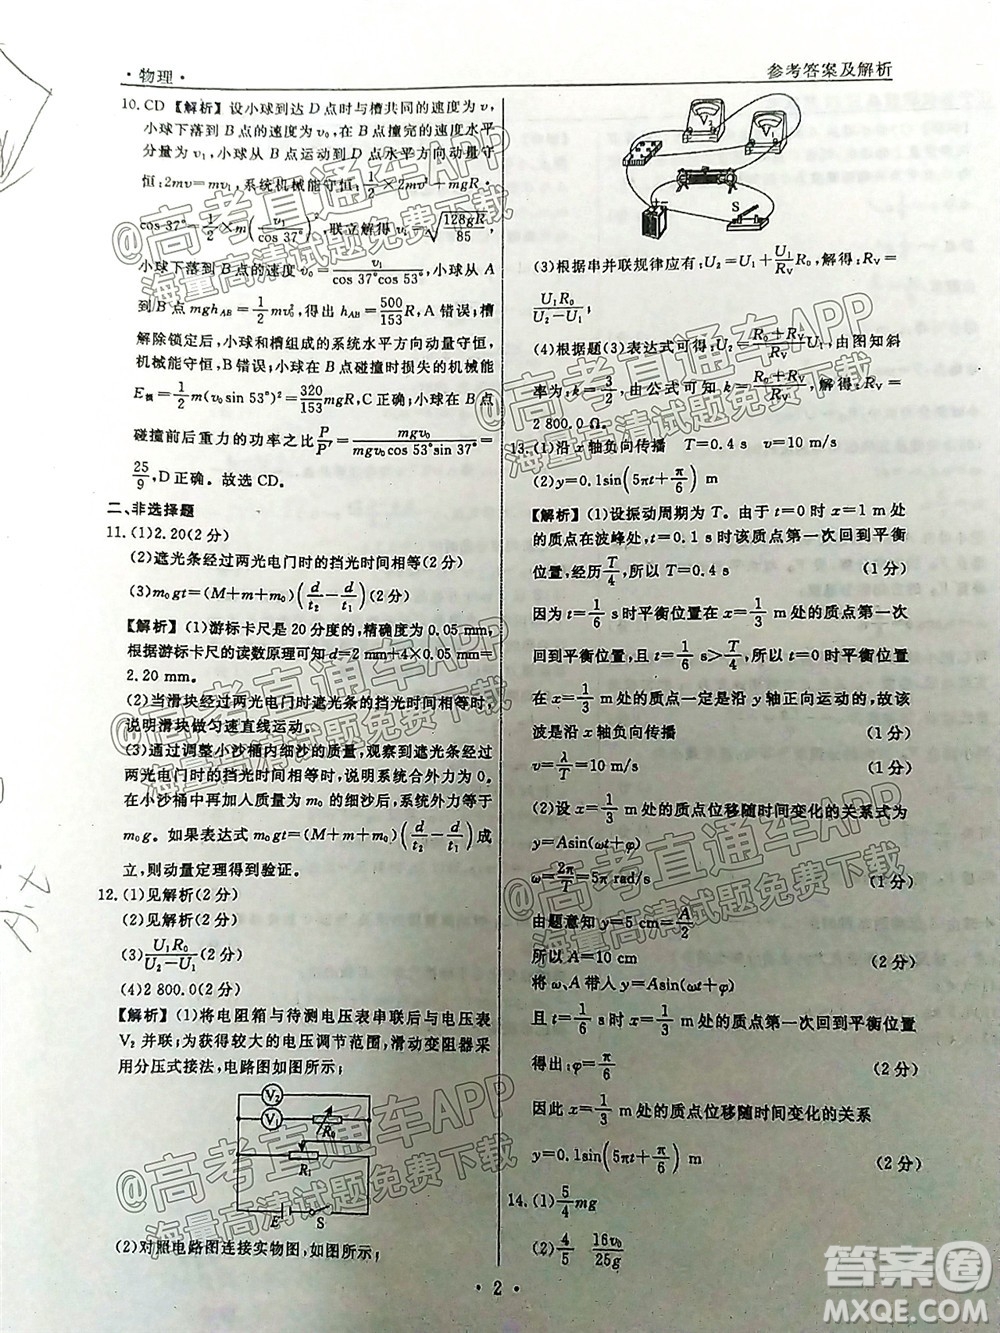 ·物理·
参考答案及解析
10. CD 【解析】设小球到达 D 点时与槽共同的速度为 v，
小球下落到 B 点的速度为 v₀，在 B 点撞完的速度水平
分量为 v₁，小球从 B 点运动到 D 点水平方向动量守
恒：2mv=mv₁，系统机械能守恒：1/2×2mv²+mgR·
cos 37°=1/2×m(v₁/cos 37°)²，联立解得 v₁=√(128gR/85)，
小球下落到 B 点的速度 v₀=v₁/(cos 37°cos 53°)，小球从 A
到 B 点 mgh_AB=1/2mv₀²，得出 h_AB=500/153R，A 错误；槽
解除锁定后，小球和槽组成的系统水平方向动量守恒，
机械能守恒，B 错误；小球在 B 点碰撞时损失的机械能
E损=1/2m(v₀sin 53°)²=320/153mgR，C 正确；小球在 B 点
碰撞前后重力的功率之比 P/P′=mgv₀/(mgv₀cos 53°sin 37°)=
25/9，D 正确。故选 CD。
二、非选择题
11. (1)2.20(2 分)
(2)遮光条经过两光电门时的挡光时间相等(2 分)
(3)m₀gt=(M+m+m₀)(d/t₂-d/t₁)(2 分)
【解析】(1)游标卡尺是 20 分度的，精确度为 0.05 mm，
根据游标卡尺的读数原理可知 d=2 mm+4×0.05 mm=
2.20 mm。
(2)当滑块经过两光电门时遮光条的挡光时间相等，
说明滑块做匀速直线运动。
(3)通过调整小沙桶内细沙的质量，观察到遮光条经过
两光电门时的挡光时间相等时，说明系统合外力为 0。
在小沙桶中再加入质量为 m₀ 的细沙后，系统合外力为
m₀g。如果表达式 m₀gt=(M+m+m₀)(d/t₂-d/t₁)成
立，则动量定理得到验证。
12. (1)见解析(2 分)
(2)见解析(2 分)
(3)U₁R₀/(U₂-U₁)(2 分)
(4)2 800.0(2 分)
【解析】(1)将电阻箱与待测电压表串联后与电压表
V₂ 并联；为获得较大的电压调节范围，滑动变阻器采
用分压式接法，电路图如图所示；
V₂
V₁
R₀
R₁
E
S
(2)对照电路图连接实物图，如图所示；
V₂
V₁
S
(3)根据串并联规律应有：U₂=U₁+U₁/R_V R₀，解得：R_V=
U₁R₀/(U₂-U₁)。
(4)根据题(3)表达式可得：U₂=(R₀+R_V)/R_V U₁，由图知斜
率为：k=3/2，由公式可知 k=(R₀+R_V)/R_V，解得：R_V=
2 800.0 Ω。
13. (1)沿 x 轴负向传播 T=0.4 s v=10 m/s
(2)y=0.1sin(5πt+π/6) m
【解析】(1)设振动周期为 T。由于 t=0 时 x=1 m 处
的质点在波峰，t=0.1 s 时 x=1 m 的质点第一次回到平衡
位置，经历 T/4，所以 T=0.4 s (1 分)
因为 t=1/6 s 时平衡位置在 x=1/3 m 处的质点第一次
回到平衡位置，t=1/6 s>T/4，说明 t=0 时平衡位置
在 x=1/3 m 的质点一定是沿 y 轴正向运动的，故该
波是沿 x 轴负向传播 (1 分)
v=λ/T=10 m/s (1 分)
(2)设 x=1/3 m 处的质点位移随时间变化的关系式为
y=Asin(ωt+φ)
ω=2π/T=5π rad/s (1 分)
由题意知 y=5 cm=A/2
所以 A=10 cm (2 分)
将 ω、A 带入 y=Asin(ωt+φ)
且 t=1/6 s 时 x=1/3 m 处的质点第一次回到平衡位置
得出：φ=π/6 (2 分)
因此 x=1/3 m 的质点位移随时间变化的关系
y=0.1sin(5πt+π/6) m (2 分)
14. (1)5/4mg
(2)4/5 16v₀/25g
· 2 ·
@高考直通车APP
海量高清试题免费下载
答案圈
MXQE.COM